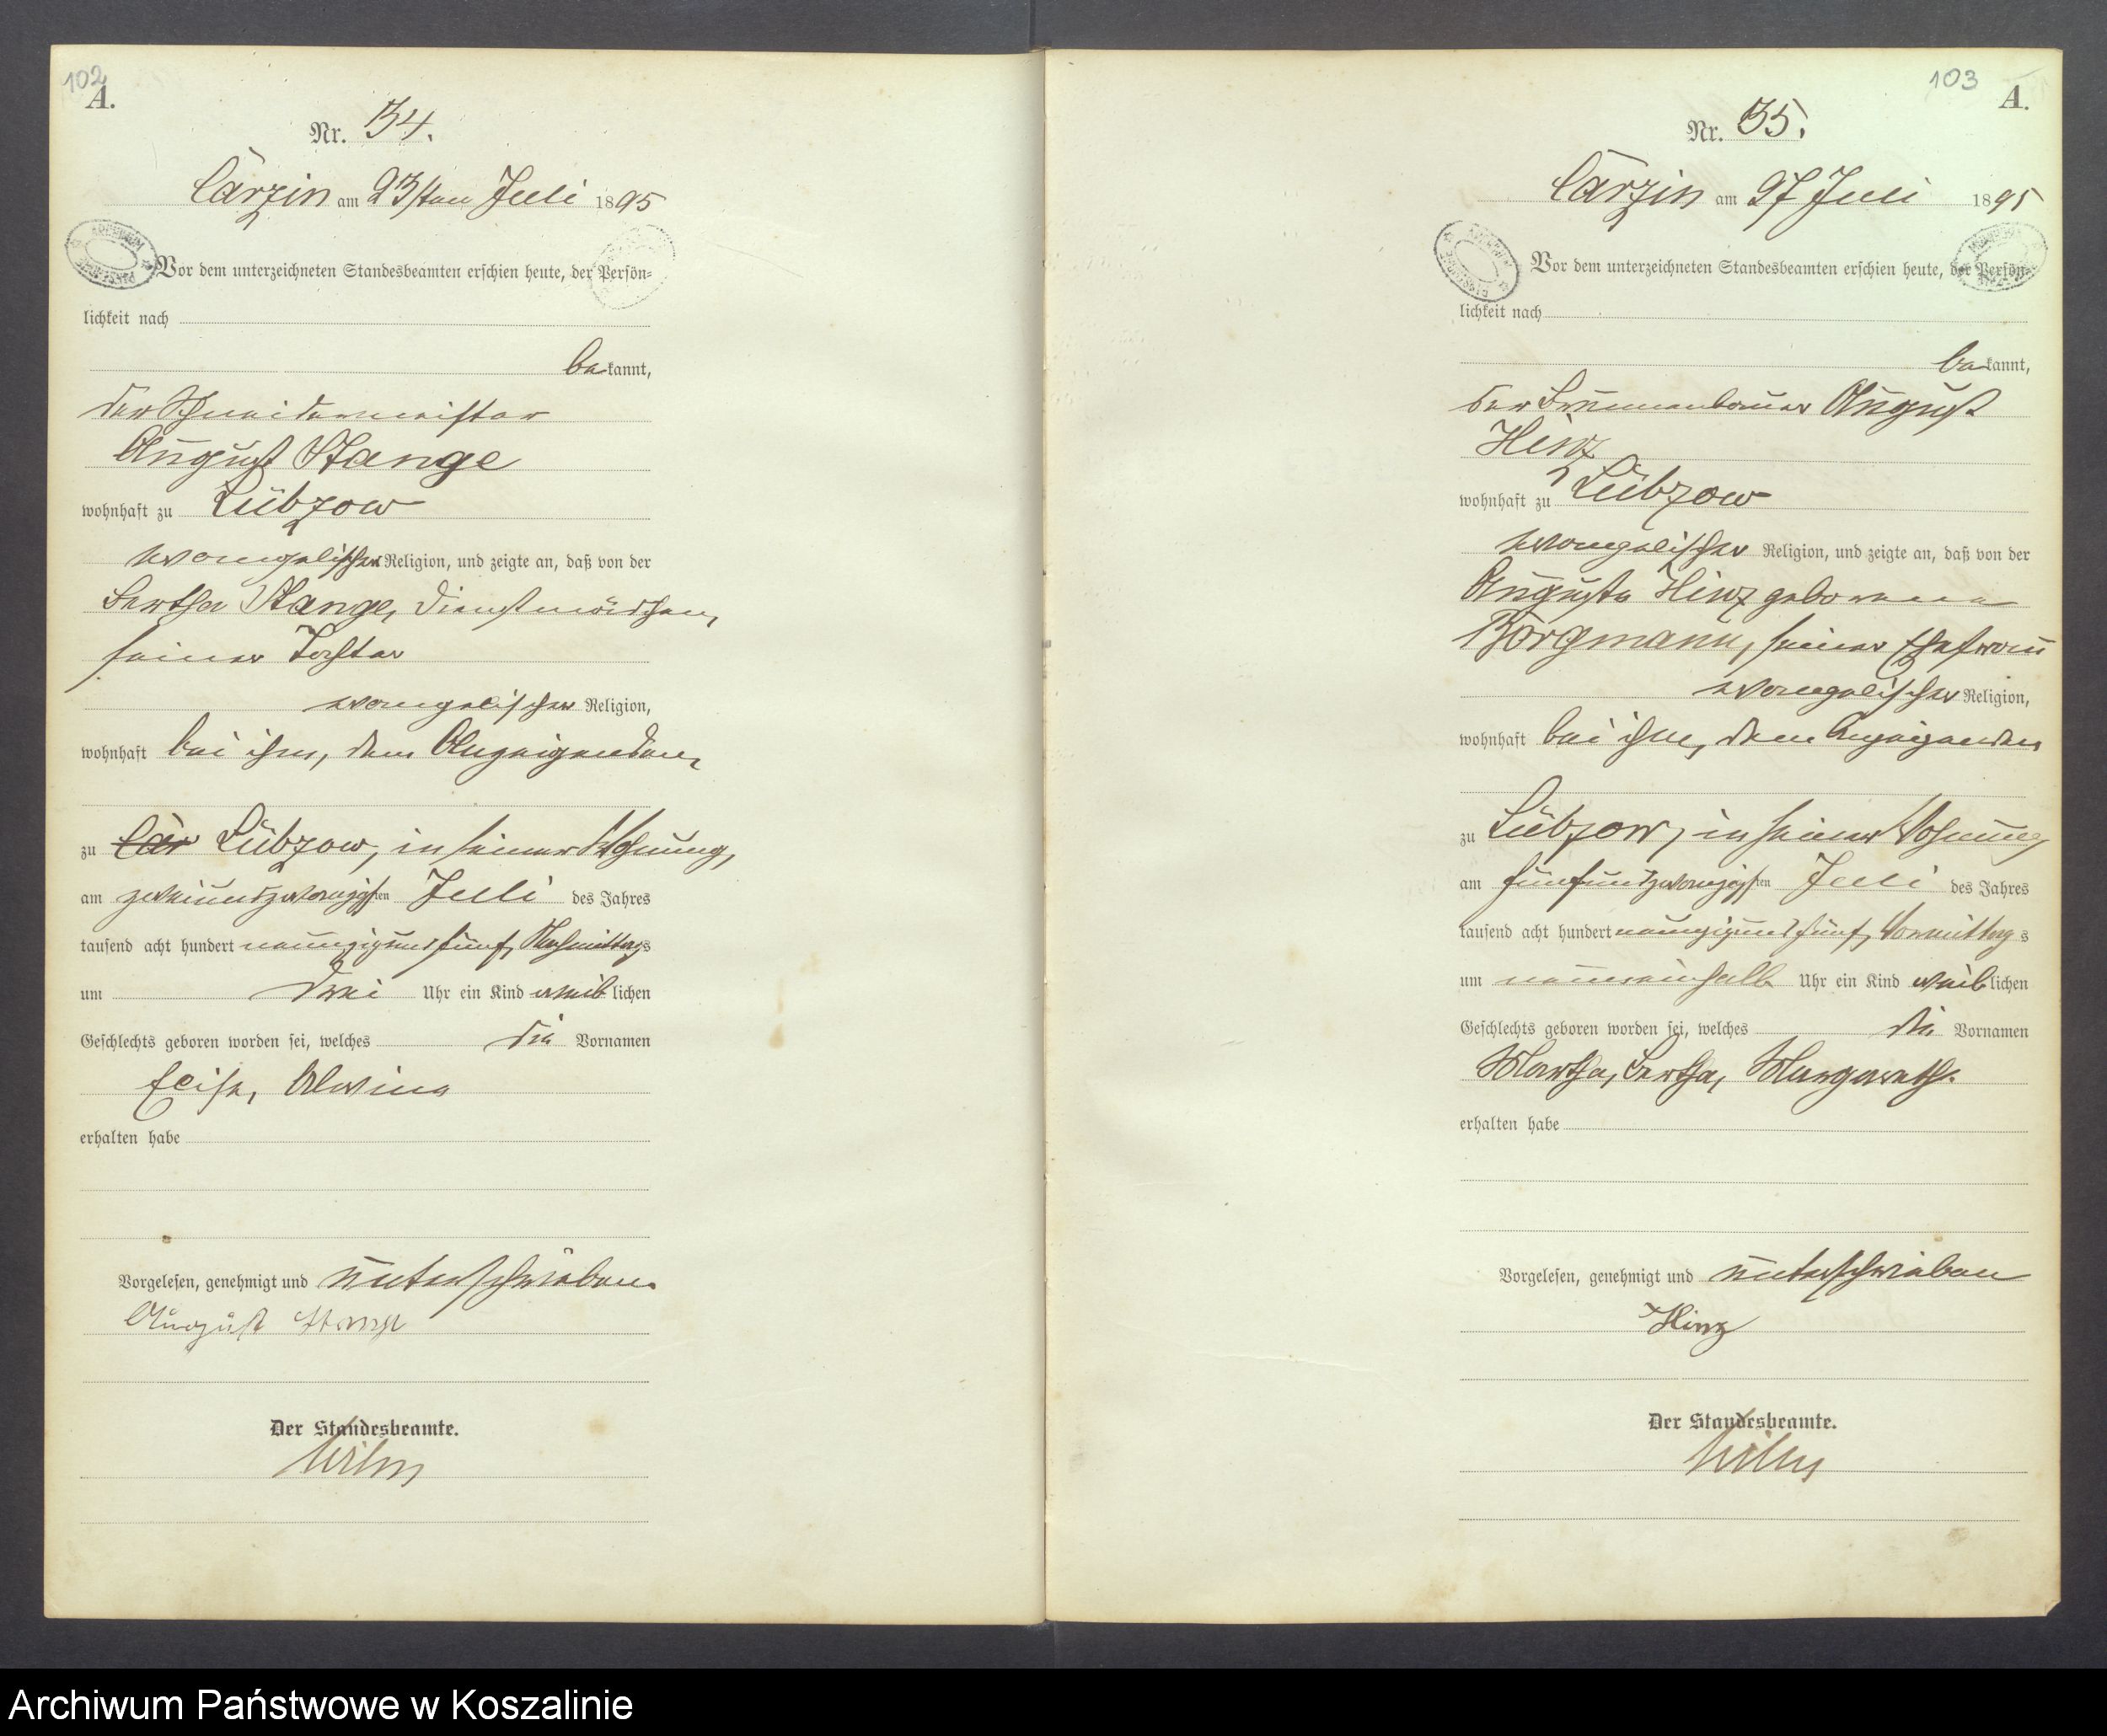 102
A.
Nr. 34.
Carzin am 23sten Juli 1895
Vor dem unterzeichneten Standesbeamten erschien heute, der Persön-
lichkeit nach
bekannt,
der Schneidermeister
August Stange
wohnhaft zu Lübzow
evangelischer Religion, und zeigte an, daß von der
Bertha Stange, Dienstmädchen,
seiner Tochter
evangelischer Religion,
wohnhaft bei ihm, dem Anzeigenden,
zu Car Lübzow, in seiner Wohnung,
am zweiundzwanzigsten Juli des Jahres
tausend acht hundert neunzigundfünf, Nachmittags
um drei Uhr ein Kind weiblichen
Geschlechts geboren worden sei, welches die Vornamen
Elise, Alwine
erhalten habe
Vorgelesen, genehmigt und unterschrieben.
August Stange
Der Standesbeamte.
Wilm
103
A.
Nr. 35.
Carzin am 27 Juli 1895
Vor dem unterzeichneten Standesbeamten erschien heute, der Persön-
lichkeit nach
bekannt,
der Brunnenbauer August
Hinz
wohnhaft zu Lübzow
evangelischer Religion, und zeigte an, daß von der
Auguste Hinz geborene
Borgmann, seiner Ehefrau
evangelischer Religion,
wohnhaft bei ihm, dem Anzeigenden
zu Lübzow, in seiner Wohnung
am fünfundzwanzigsten Juli des Jahres
tausend acht hundert neunzigundfünf, Vormittags
um neuneinhalb Uhr ein Kind weiblichen
Geschlechts geboren worden sei, welches die Vornamen
Martha, Bertha, Margareth.
erhalten habe
Vorgelesen, genehmigt und unterschrieben
Hinz
Der Standesbeamte.
Wilm
Archiwum Państwowe w Koszalinie